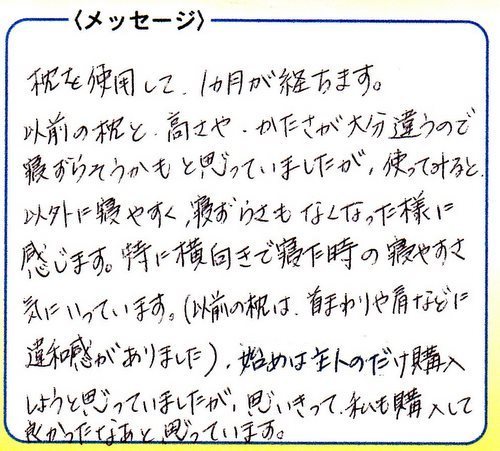 〈メッセージ〉
枕を使用して、1カ月が経ちます。
以前の枕と、高さや、かたさが大分違うので
寝ずらそうかもと思っていましたが、使ってみると、
以外に寝やすく、寝ずらさもなくなった様に
感じます。特に横向きで寝た時の寝やすさ
気にいっています。(以前の枕は、首まわりや肩などに
違和感がありました)、始めは主人のだけ購入
しようと思っていましたが、思いきって、私も購入して
良かったなあと、思っています。